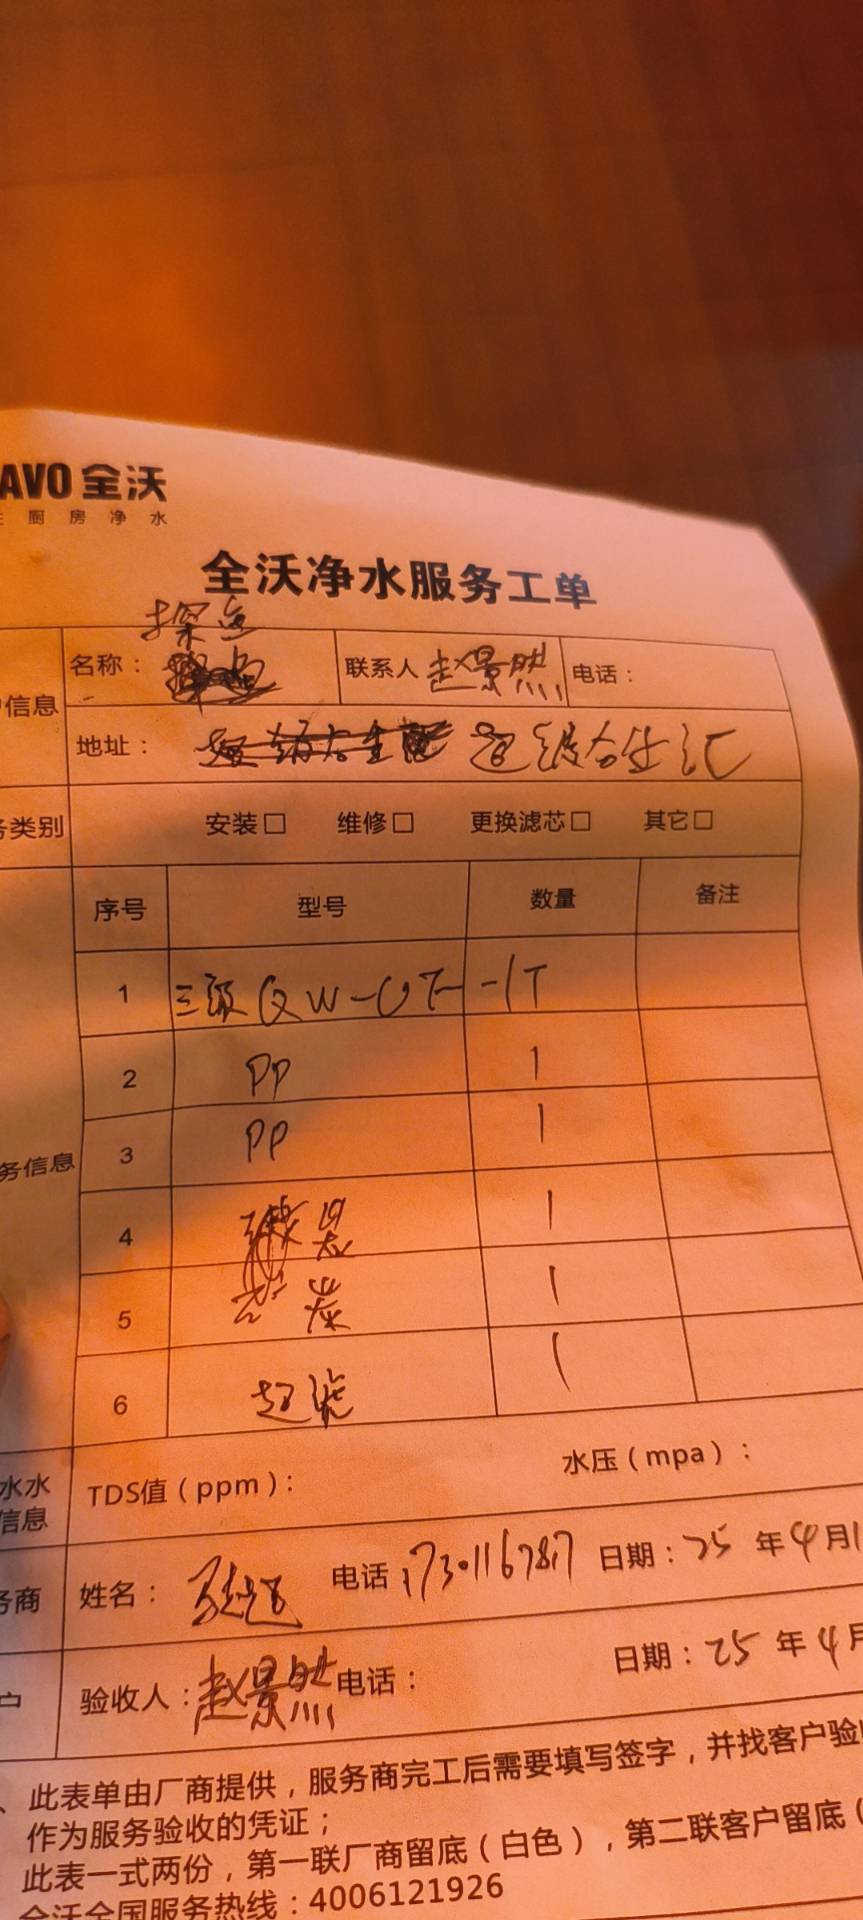 AVO 全沃
厨房净水
全沃净水服务工单
探鱼
名称： 联系人 赵景然 电话：
户信息
地址： 超级合生汇
务类别 安装□ 维修□ 更换滤芯□ 其它□
序号 型号 数量 备注
1 三级QW-UF-1T
2 PP 1
3 PP 1
务信息
4 1
5 炭 1
6 超滤 1
水水
信息
TDS值（ppm）： 水压（mpa）：
务商 姓名： 电话： 日期：25 年 4 月1
户 验收人：赵景然 电话： 日期：25 年 4 月
、此表单由厂商提供，服务商完工后需要填写签字，并找客户验收
作为服务验收的凭证；
此表一式两份，第一联厂商留底（白色），第二联客户留底（
全沃全国服务热线：4006121926